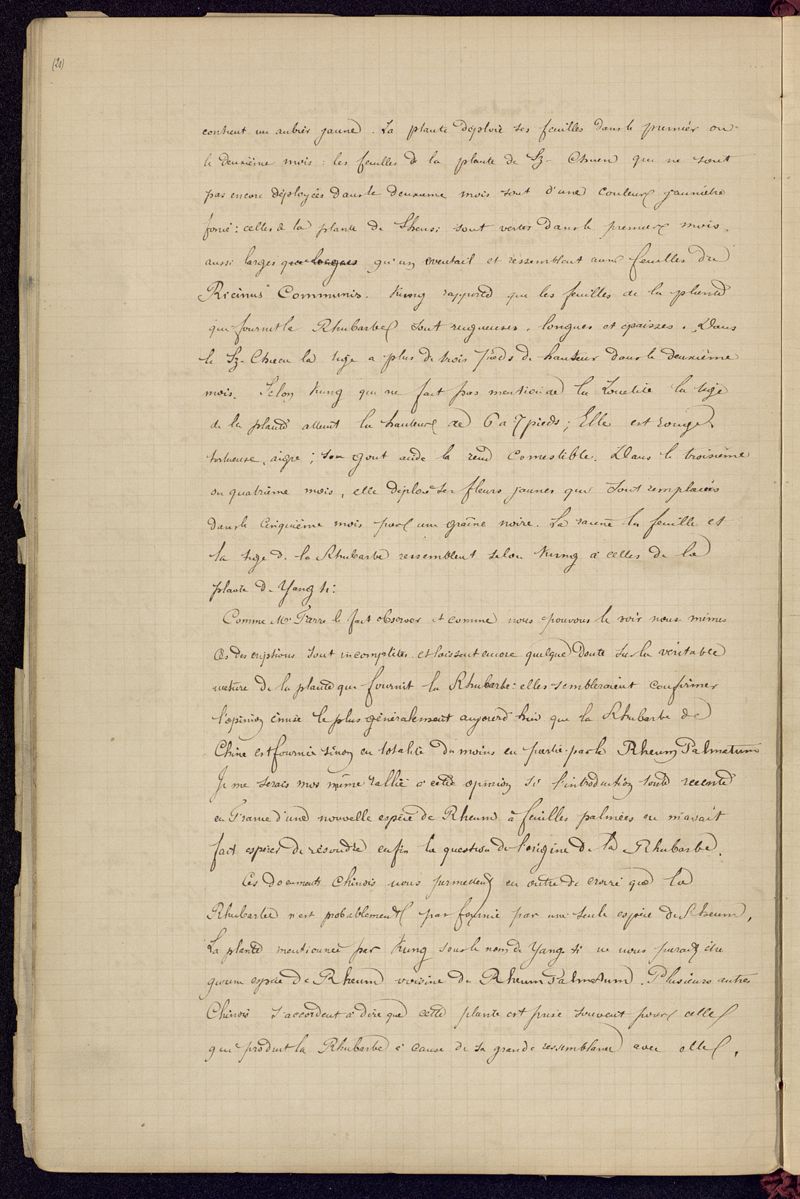 (20)
contient un aubier jaune. La plante déploie ses feuilles dans le premier ou
le deuxième mois : les feuilles de la plante de Sz-Chuen qui ne sont
pas encore déployées dans le deuxieme mois sont d'une couleur jaunâtre
foncé : celles de la plante de Shensi sont vertes dans le premier mois.
aussi larges que longues qu'un éventail et ressemblent aux feuilles du
Ricinus Communis. Kung rapporte que les feuilles de la plante
qui fournit la Rhubarbe sont rugueuses, longues et epaisses. Dans
le Sz-Chuen la tige a plus de trois pieds de hauteur dans le deuxième
mois. Selon Kung qui ne fait pas mention de la la tige
de la plante atteint la hauteur de 6 a 7 pieds ; Elle est rouge,
tortueuse, aigre ; son gout acide la rend comestible. Dans le troisième
ou quatrième mois, elle déploie ses fleurs jaunes qui sont remplacées
dans le cinquième mois par une graine noire. La racine la feuille et
la tige de la Rhubarbe ressemblent selon Kung à celles de la
plante de Yang ti :
Comme Mr Farre le fait observer et comme nous pouvons le voir nous mêmes
ces descriptions sont incomplètes et laissent encore quelque doute sur la véritable
nature de la plante qui fournit la Rhubarbe : elles sembleraient confirmer
l'opinion émise le plus généralement aujourd'hui que la Rhubarbe de
Chine est fournie sinon en totalité du moins en partie par le Rheum Palmatum
Je me serais moi même rallié à cette opinion si l'introduction toute recente
en France d'une nouvelle espèce de Rheum à feuilles palmées ne m'avait
fait espérer de résoudre enfin la question de l'origine de la Rhubarbe.
Ces documents Chinois nous permettent en outre de croire que la
Rhubarbe n'est probablement pas fournie par une seule espèce de Rheum,
La plante mentionnée par Kung sous le nom de Yang ti ne nous parait être
qu'une espèce de Rheum voisine du Rheum Palmatum. Plusieurs autres
Chinois s'accordent à dire que cette plante est prise souvent pour celle
qui produit la Rhubarbe à cause de sa grande ressemblance avec elle.